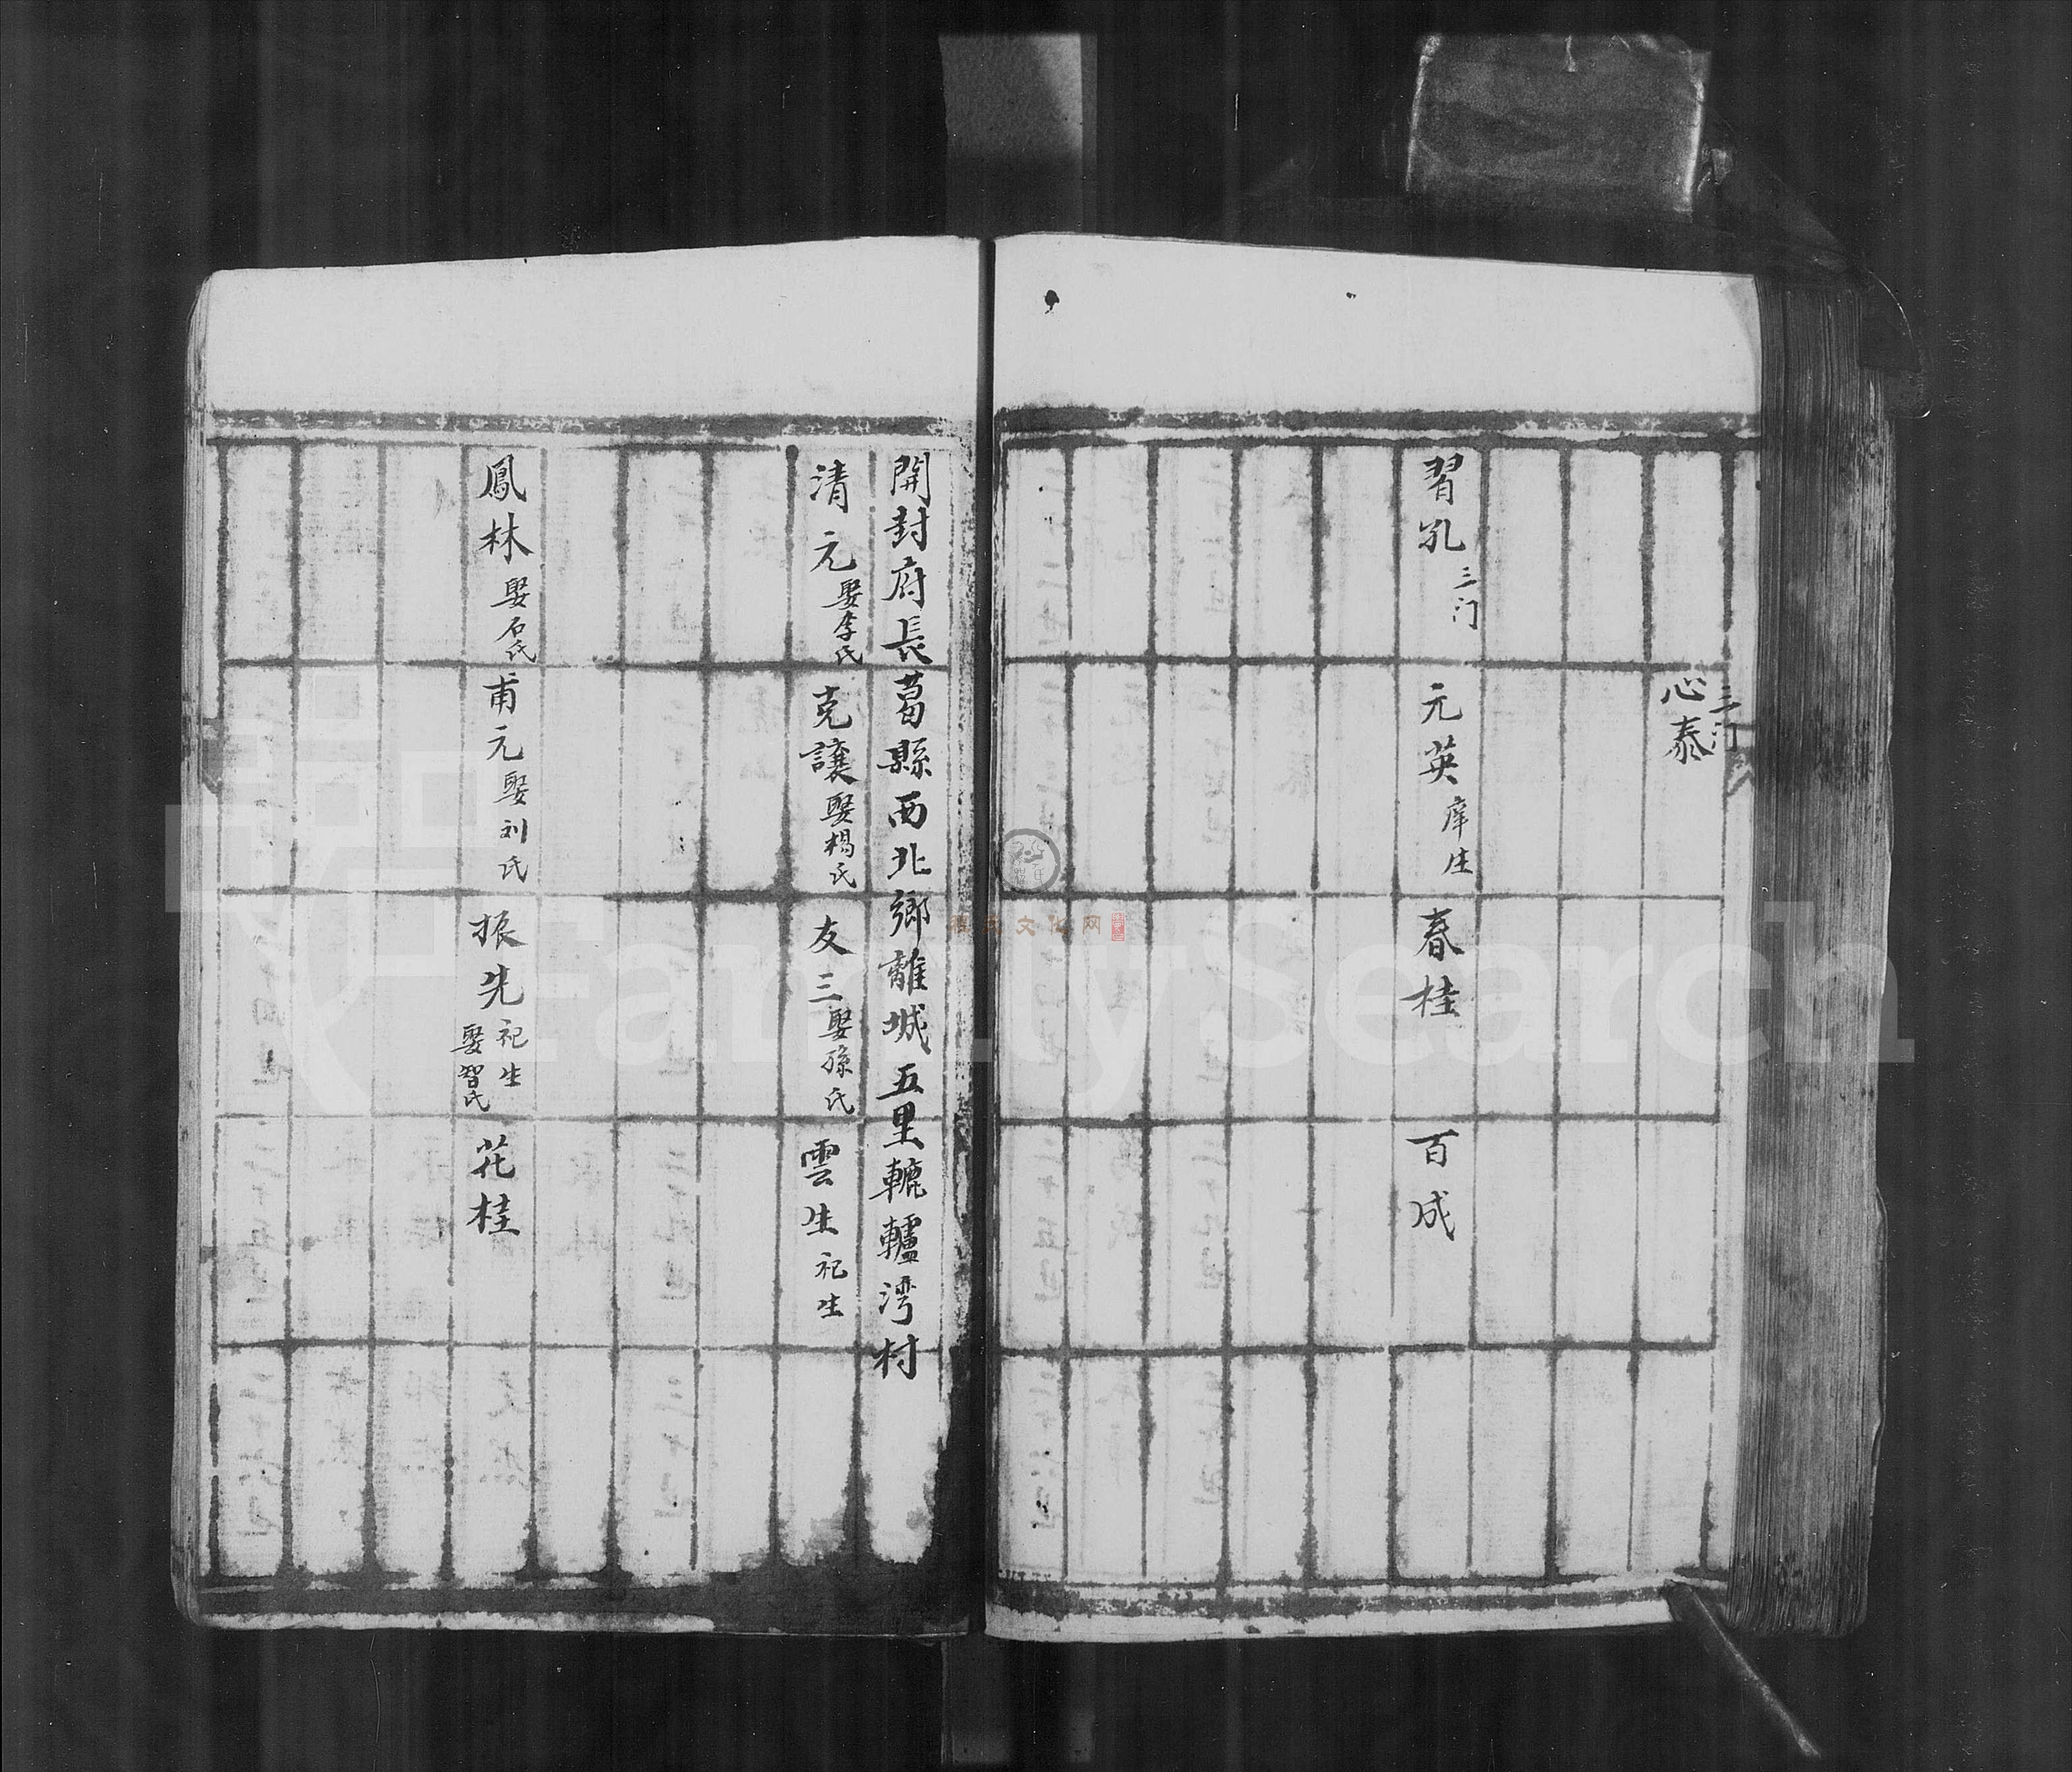 三门
心泰
習孔 三门 元英 庠生 春桂 百成
開封府長葛縣西北鄉離城五里轆轤湾村
清元 娶李氏 克讓 娶楊氏 友三 娶孫氏 雲生 祀生
鳳林 娶石氏 甫元 娶刘氏 振先 祀生 娶智氏 花桂
FamilySearch
文化网